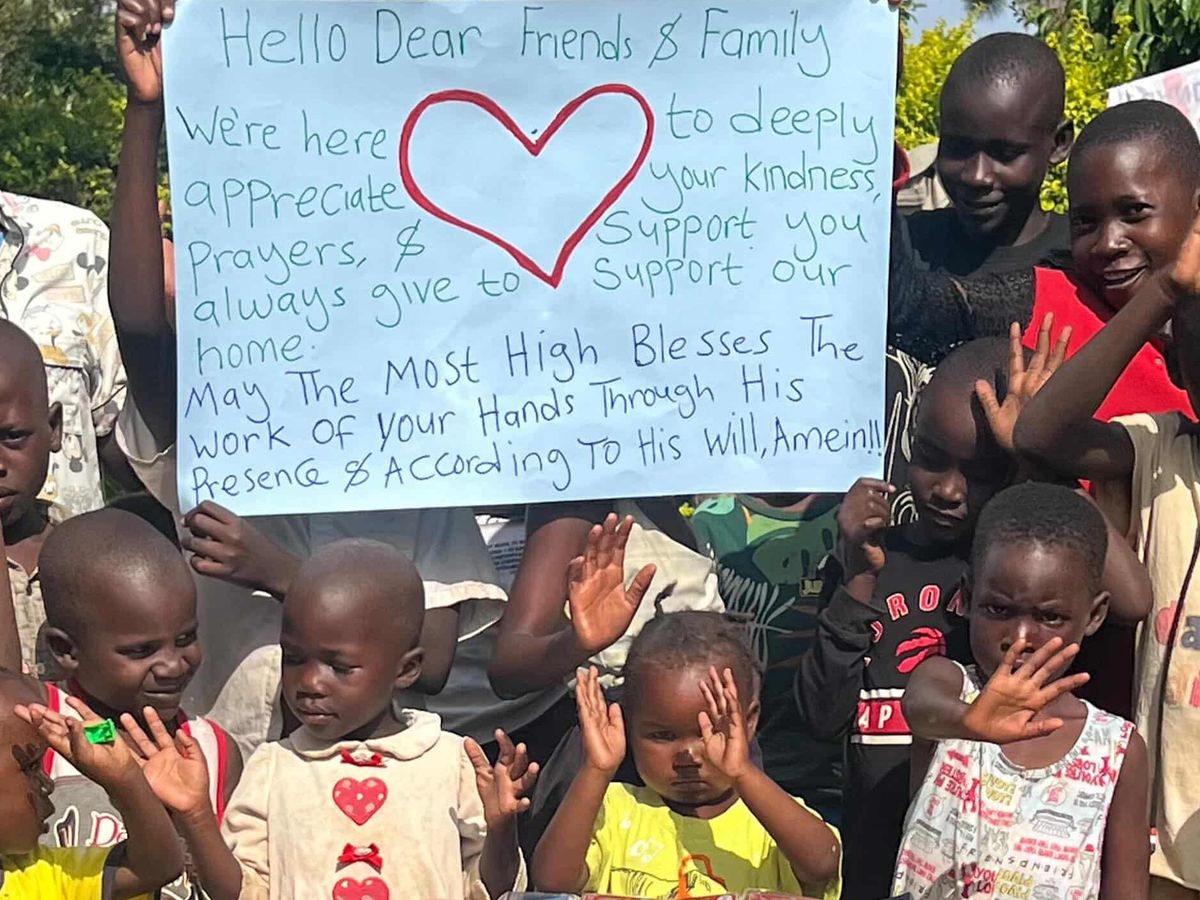 Hello Dear Friends & Family
We're here to deeply
appreciate your kindness,
Prayers, & Support you
always give to Support our
home.
May The Most High Blesses The
Work Of Your Hands Through His
Presence & According To His Will, Amein!!
RON
AP